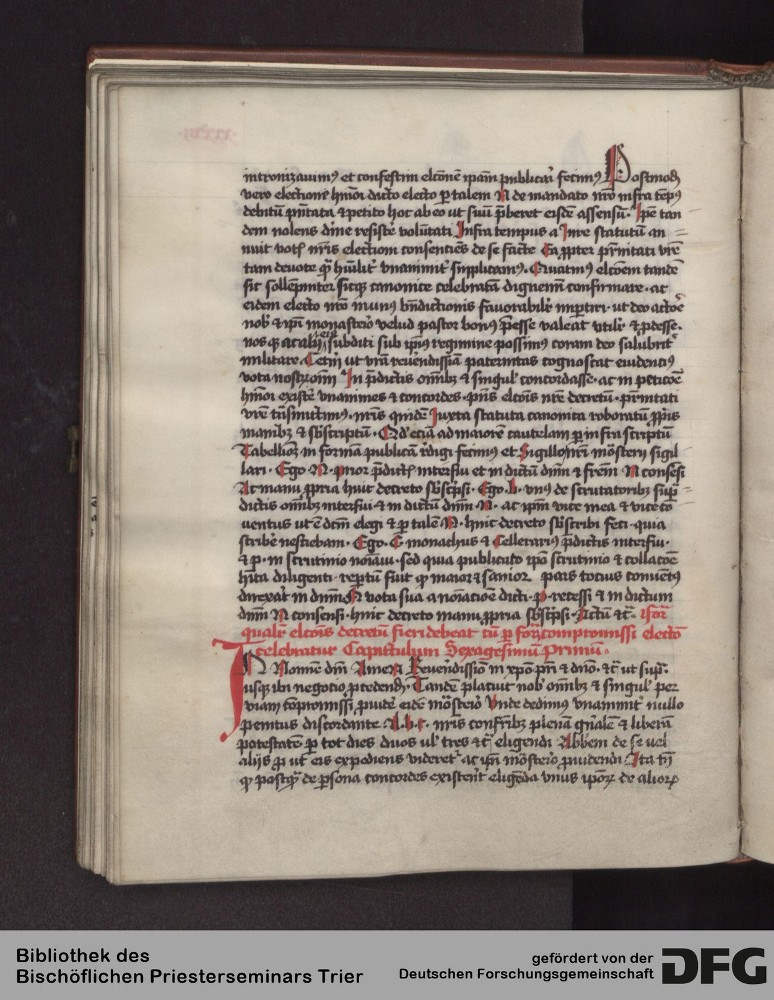 intronizauimꝰ et confestim elcōnē ip̄am publicari fecimꝰ Postmodū
vero electione hmōi dicto electo ꝑ talem N de mandato nr̄o infra tempꝰ
debitū pn̄tata & petito hoc ab eo ut suū p̄beret eisdē assensū. Ip̄e tan
dem nolens diuīe resistē volūtati Infra tempus a Iure statutū an
nuit votꝭ nr̄is electiom consenciēs de se factē Ea ꝓpter pr̄nitati vrē
tam deuote qͣ hūilr̄ vnanimitꝰ supplicamꝰ. Quatinꝰ elcōem tandē
sic sollempniter sicqꝫ canonice celebratā dignemī confirmare. ac
eidem electo nr̄o munꝰ bn̄dictionis fauorabilr̄ imꝑtiri. ut deo actoē
nob & ip̄i monasterio velud pastor bonꝰ p̄esse valeat vtilr̄ & ꝓdesse.
nos qꝫ ac alij eiꝰ subditi sub ipiꝰ regimine possimꝰ coram deo salubritꝰ
militare. Cetim ut vrā reuēndissīa paternitas cognoscat euidenciꝰ
vota nostrꝫ omnī In p̄dictis omībꝫ & singulꝭ concordasse. ac in peticoē
hmōi existē vnanimes & concordes. pn̄s elcōis nrē decretū. pr̄nitati
vrē tn̄smittimꝰ. nr̄is quidē Iuxta statuta canonica roboratū ꝓp̄is
manibꝫ & sb̄scriptū. Qd' eciā ad maiorē cautelam ꝑ infra scriptū
Tabellioꝫ in formā publicā rēdigi fecimꝰ et Sigillo nr̄i mōstery sigil
lari. Ego N. prior p̄dictꝭ interfui et in dictū dnm̄ & frēm N consēsi
Ac manu ꝓpria huic decreto sb̄scpsi. Ego. b. vnꝰ de scrutatoribꝫ sup̄
dictis omībꝫ interfui & in dictū dnm̄ N. ac ip̄m vice mea & vice cō
uentus ut ē dcm̄ elegi & ꝑ talē N. huic decreto sb̄scribi feci. quia
scribē nesciebam. Ego. C. monachus & Cellerariꝰ p̄dictis interfui.
& p. in scrutinio noīaui. sed quia publicato ip̄o scrutinio & collacoē
hīta diligenti. reꝑtū fuit qꝫ maior & sanior pars tocius conuētꝰ
direxat in dnm̄ N vota sua a noīatioē dicti. p. recessi & in dictum
dnm̄ N consensi. huic decreto manu ꝓpria sb̄scpsi. Actū &c̄.
qualr̄ elcōis decretū fieri debeat cū ꝑ forā compromissi electō
celebratur Capitulum Sexagesimū Primū.
IN Nomine dnī Amen Reuerēdissīo in xp̄o prī & dnō. &c̄ ut supꝰ.
usqꝫ ibi negotio ꝓcedendꝭ. Tandē placuit nob omībꝫ & singulꝭ per
viam cōpromissi ꝓuidē eidē mōsterio Vnde dedimꝰ vnanimitꝰ nullo
penitus discordante. A. b. c. nr̄is confr̄ibꝫ plenā gn̄alē & liberā
potestatē ꝑ tot dies duos ul' tres &c̄ eligendi Abbēm de se uel
alijs ꝓ ut eis expediens videret' ac ip̄i mōsterio ꝓuidendi. Ita tn̄
qꝫ postqͣ de ꝑsona concordes existerēt eligēda vnus ipoꝝ de alioꝝ
Bibliothek des
Bischöflichen Priesterseminars Trier
gefördert von der
Deutschen Forschungsgemeinschaft
DFG